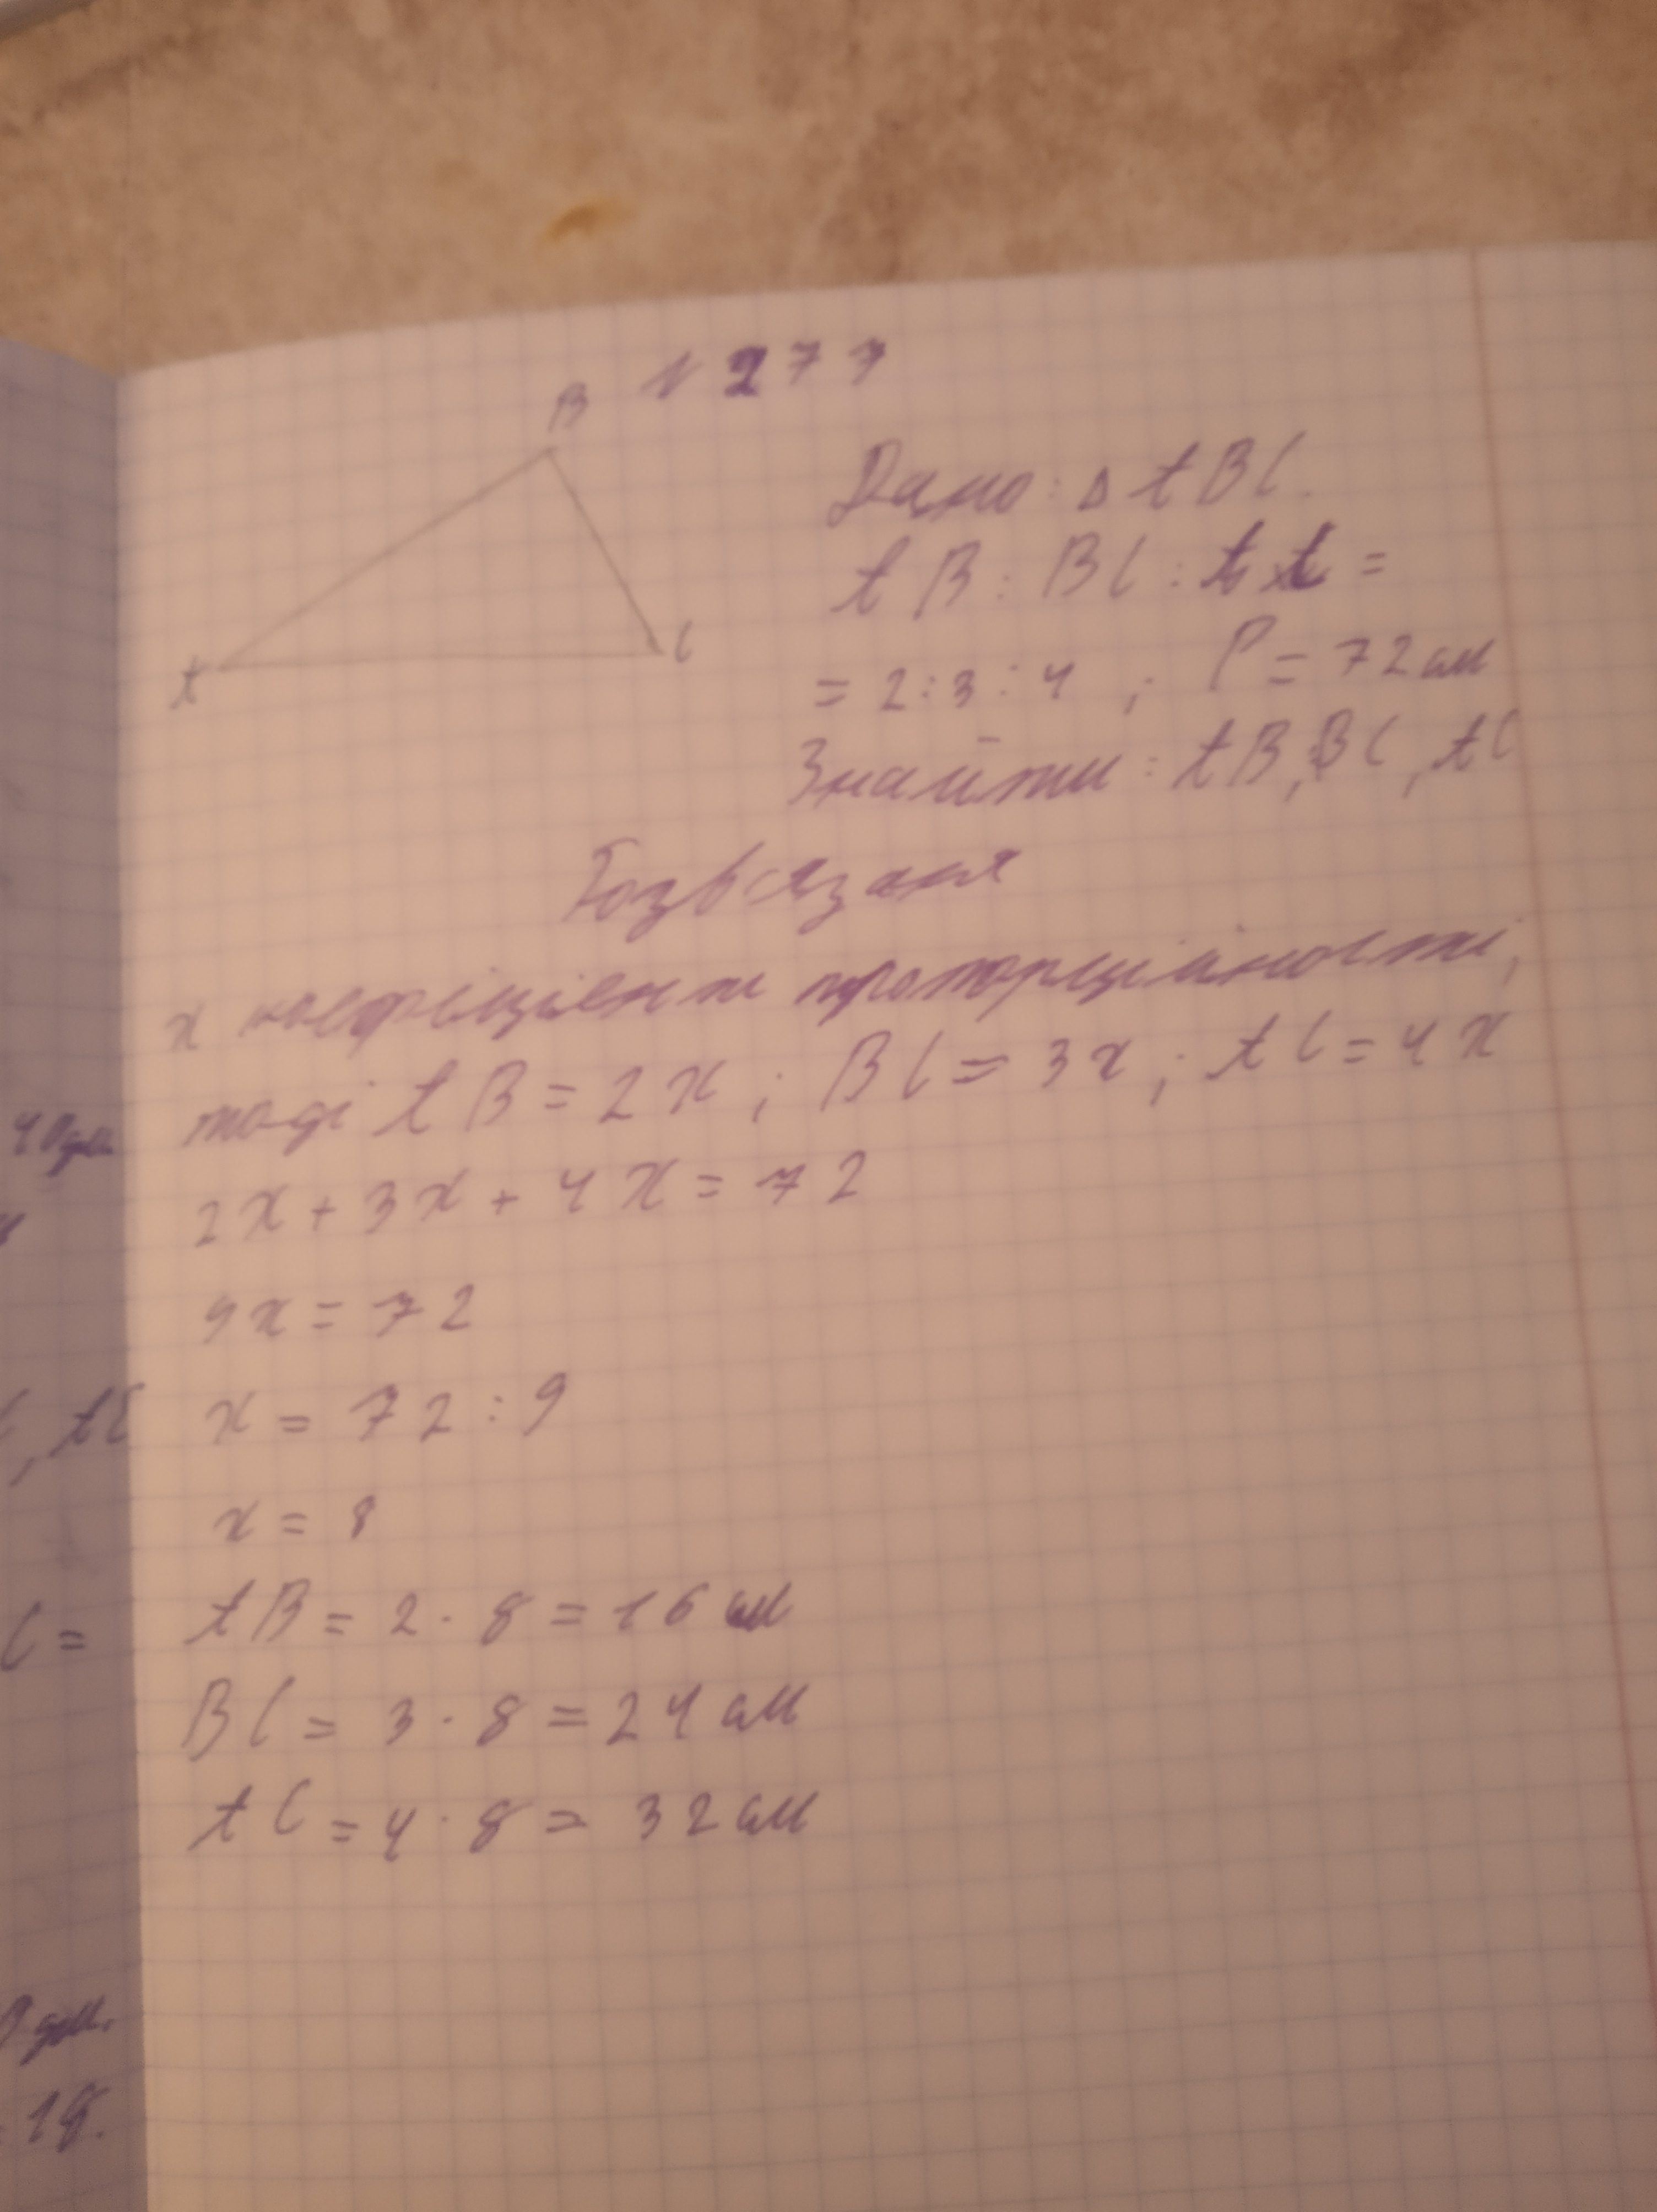 B № 277
A C
Дано: Δ ABC.
AB : BC : AC =
= 2 : 3 : 4 ; P = 72 см
Знайти: AB, BC, AC
Розв'язаня
x коефіцієнт пропорційності,
тоді AB = 2x ; BC = 3x ; AC = 4x
2x + 3x + 4x = 72
9x = 72
x = 72 : 9
x = 8
AB = 2 · 8 = 16 см
BC = 3 · 8 = 24 см
AC = 4 · 8 = 32 см
, AC
C =
18.